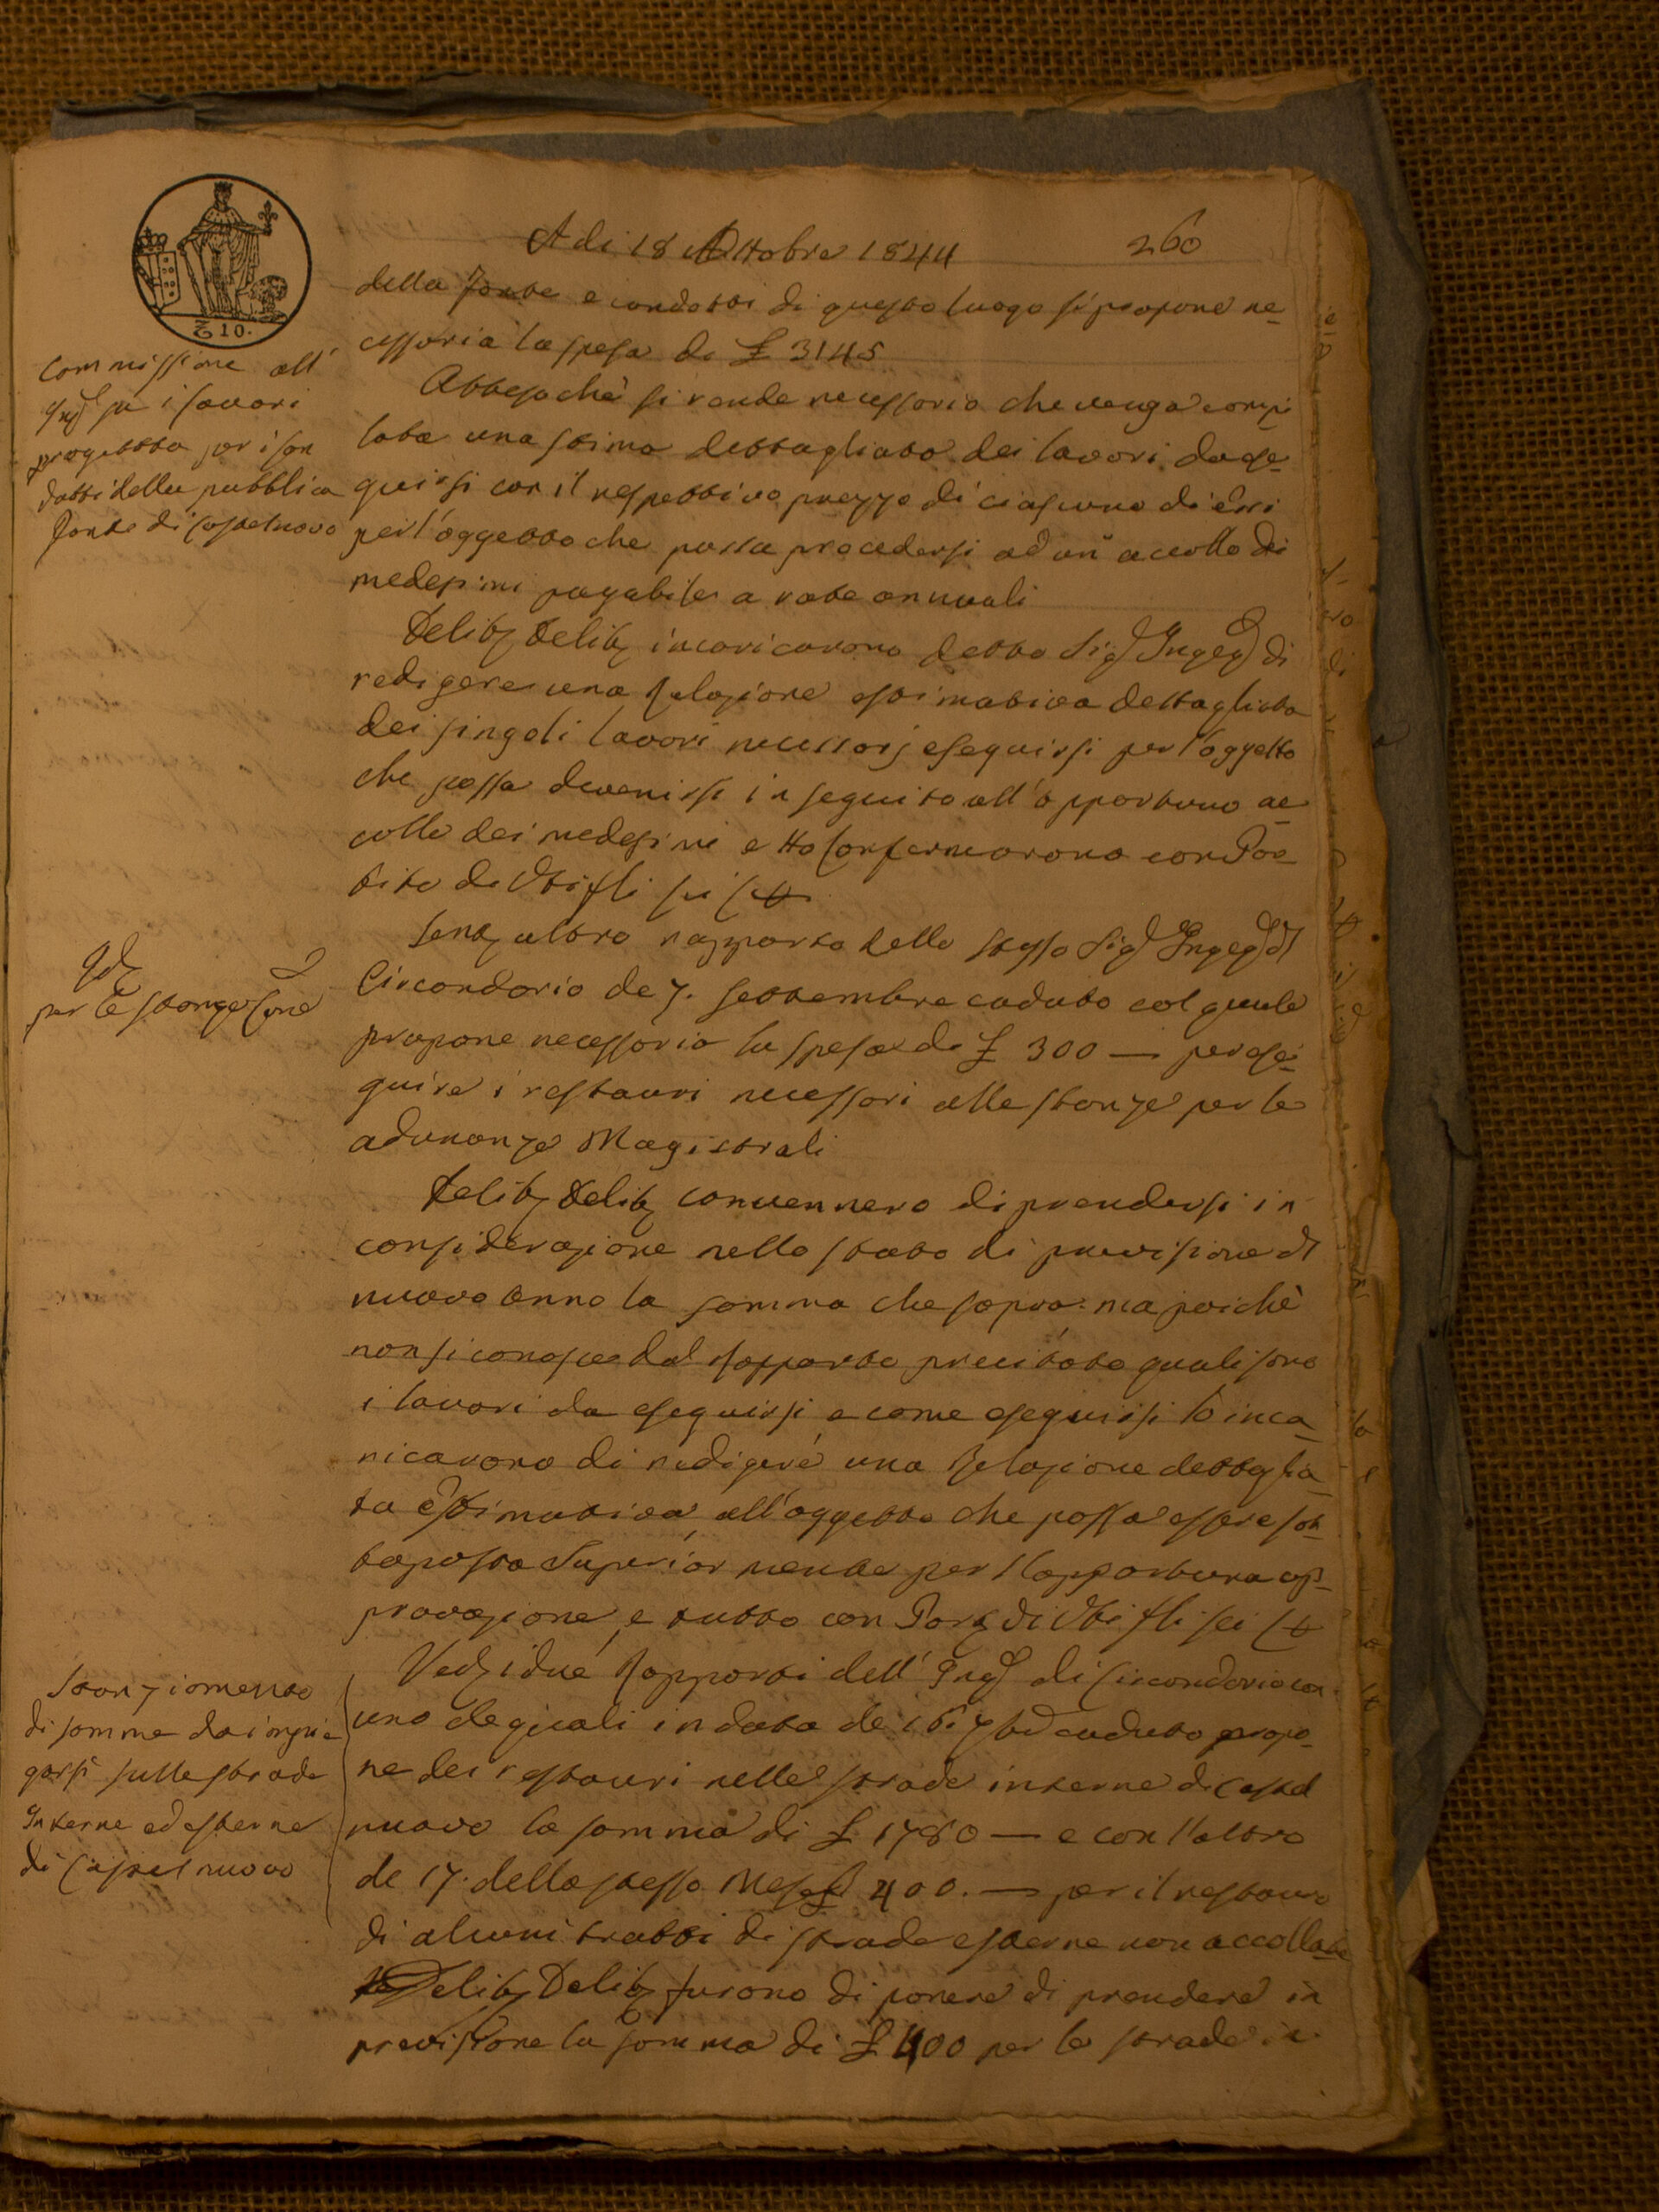 A di 18 Ottobre 1844
260
della Fonte e condotti di questo luogo si propone ne-
cessaria la spesa di £ 3145
Attesoche si rende necessario che venga compi
lata una stima dettagliata dei lavori da ese-
guirsi con il respettivo prezzo di ciascuno di essi
per l'oggetto che possa procedersi ad un accollo dei
medesimi pagabile a rate annuali
Delib Delib incaricarono detto Sig Ingeg di
redigere una Relazione estimativa dettagliata
dei singoli lavori necessarj eseguirsi per l'oggetto
che possa devenirsi in seguito all'opportuno ac-
collo dei medesimi e tto confermarono con Par-
tito di Vti fli sei
Sent altro rapporto dello stesso Sig Ingeg di
Circondario de 7. Settembre caduto col quale
propone necessario la spesa di £ 300 — per ese-
guire i restauri necessari alle stanze per le
adunanze Magistrali
Delib Delib convennero di prendersi in
considerazione nello stato di previsione di
nuovo anno la somma che sopra. ma poichè
non si conosce dal Rapporto precitato quali sono
i lavori da eseguirsi e come eseguirsi lo inca-
ricarono di redigere una Relazione dettaglia-
ta estimativa all'oggetto che possa essere sot-
toposta Superiormente per l'opportuna ap-
provazione, e tutto con Part di Vti fli sei
Ved i due Rapporti dell' Ing di Circondario con
uno de quali in data de 16. 7bre caduto propo-
ne dei restauri nelle strade interne di Castel
nuovo la somma di £ 1780 — e con l'altro
de 17. dello stesso Mese £ 400. — per il restauro
di alcuni tratti di strade esterne non accollate
Delib Delib furono di parere di prendere in
previsione la somma di £ 400 per le strade in
Commissione all'
Ing per i lavori
progettati per i con
dotti della pubblica
Fonte di Castelnuovo
per le stanze
Stanziamento
di somme da impie
garsi sulle strade
Interne ed esterne
di Castelnuovo
10.